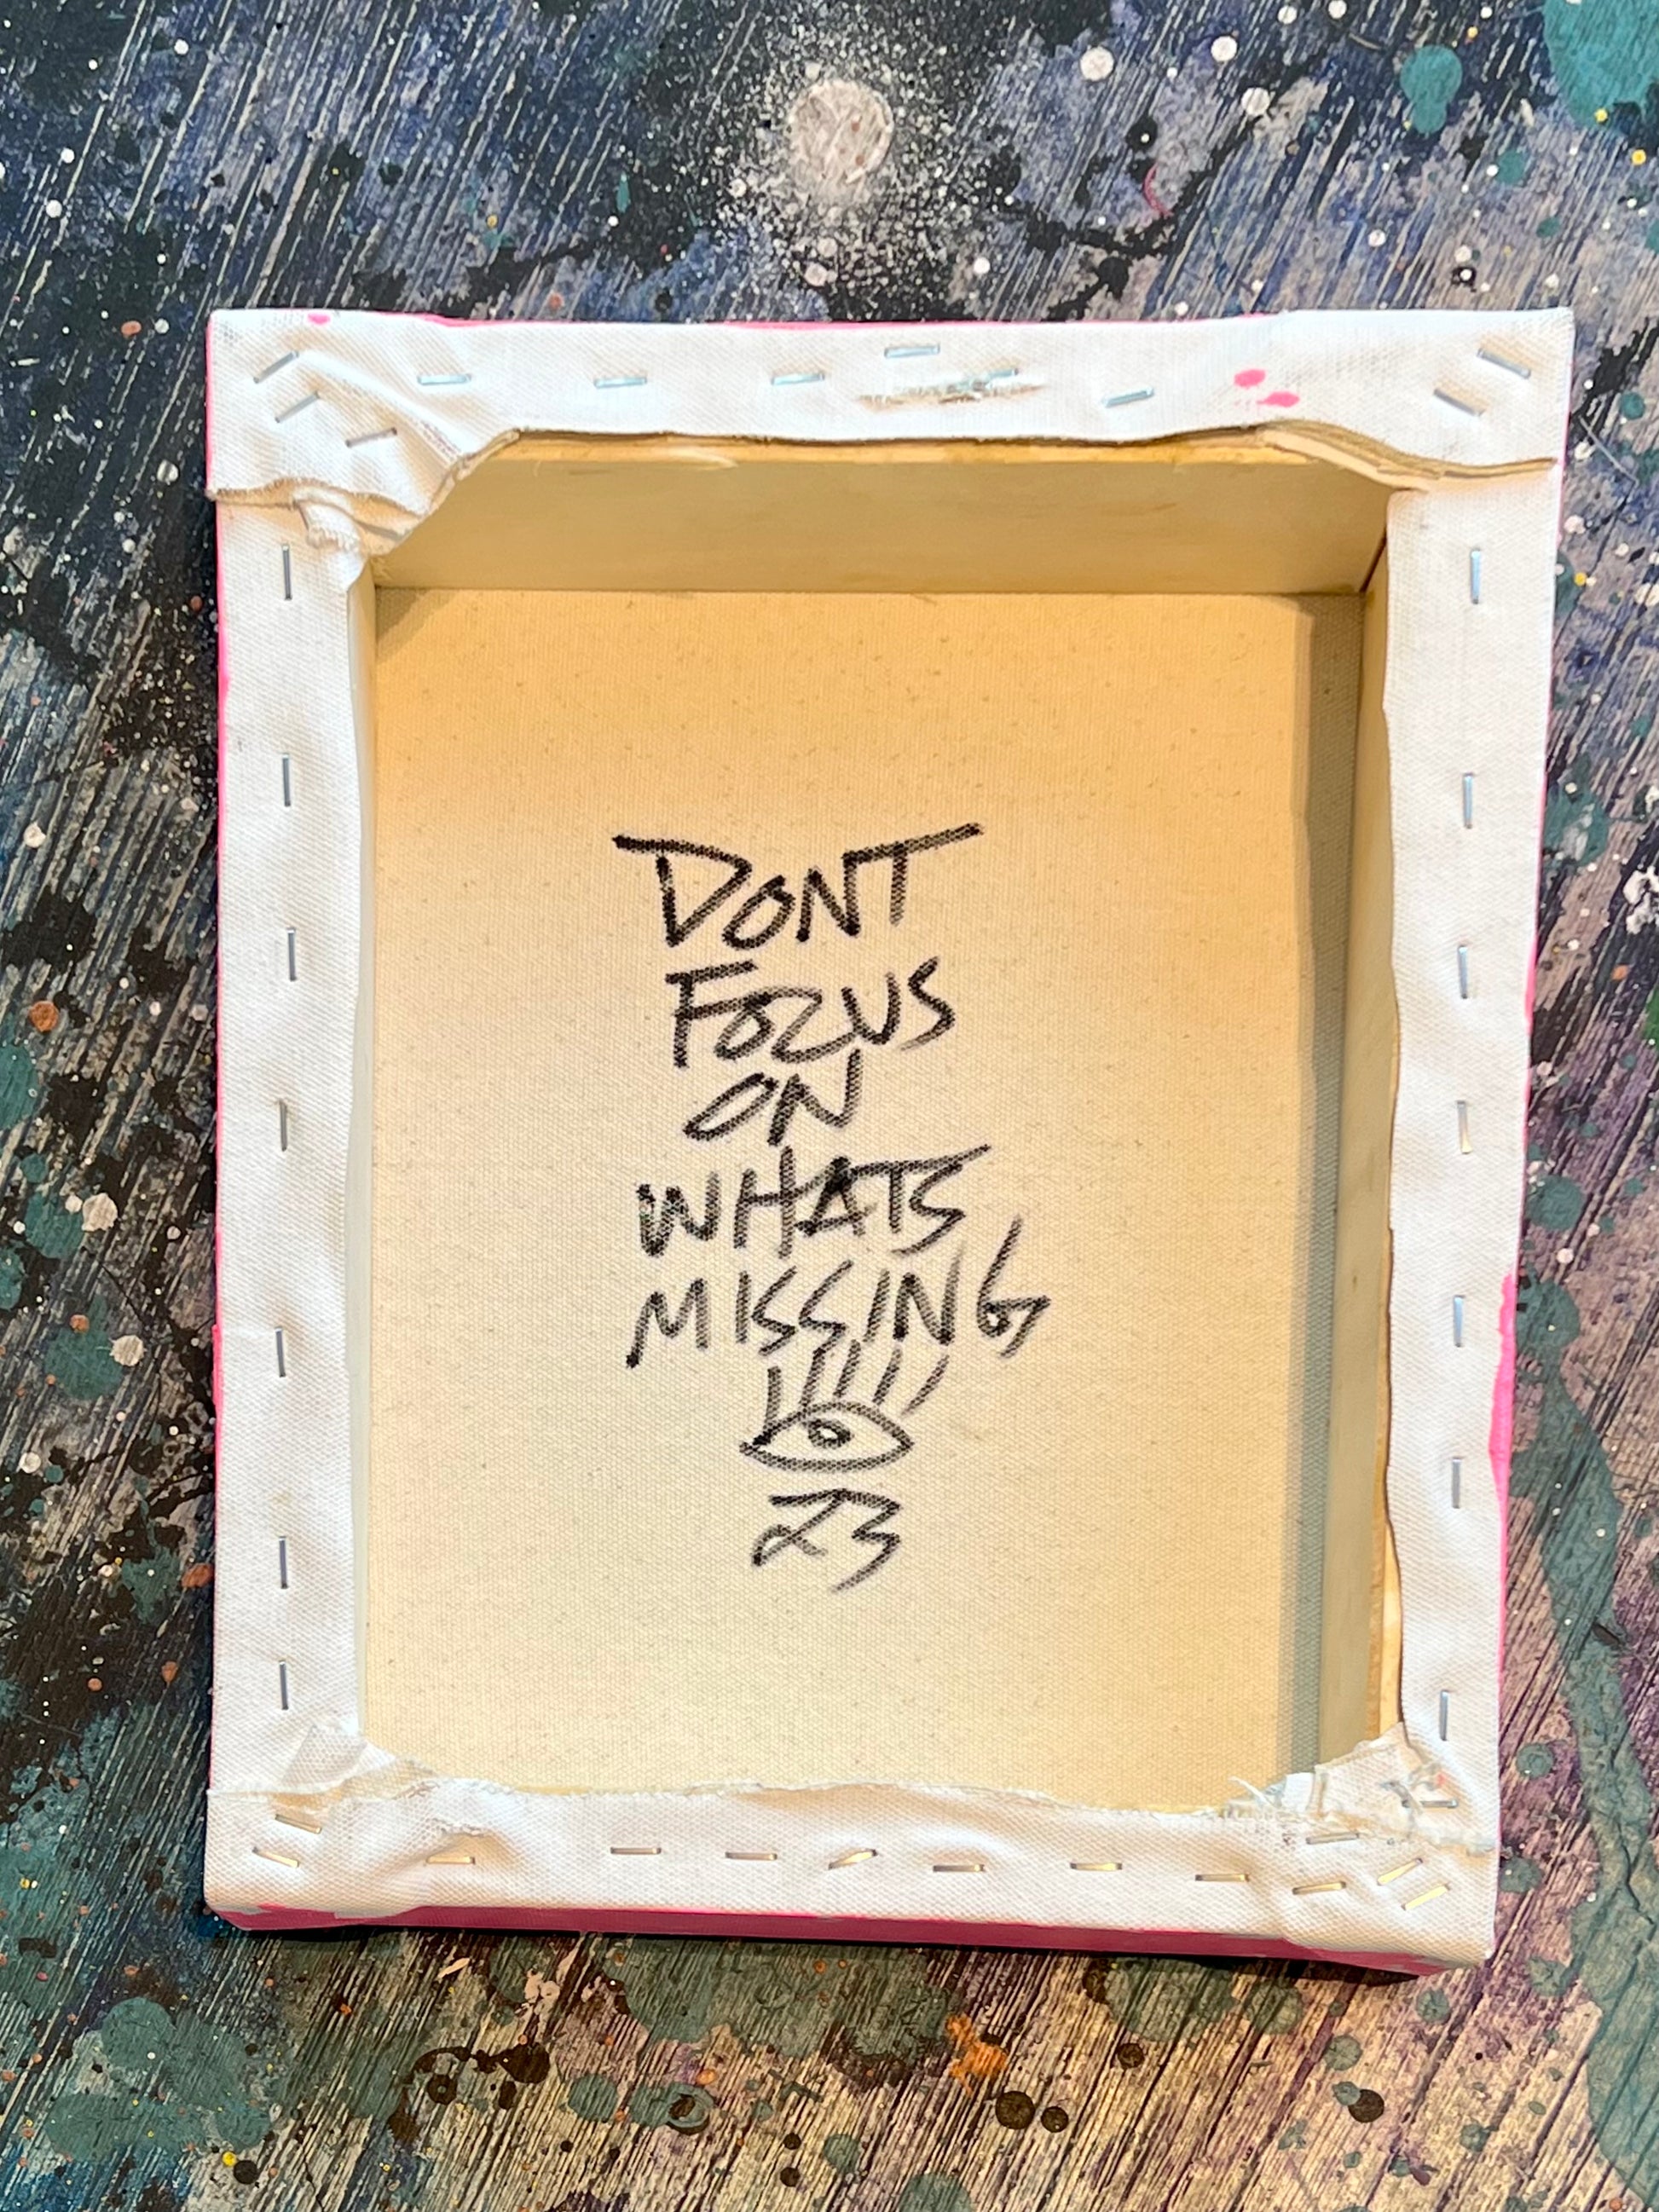 DONT
FOCUS
ON
WHATS
MISSING
23